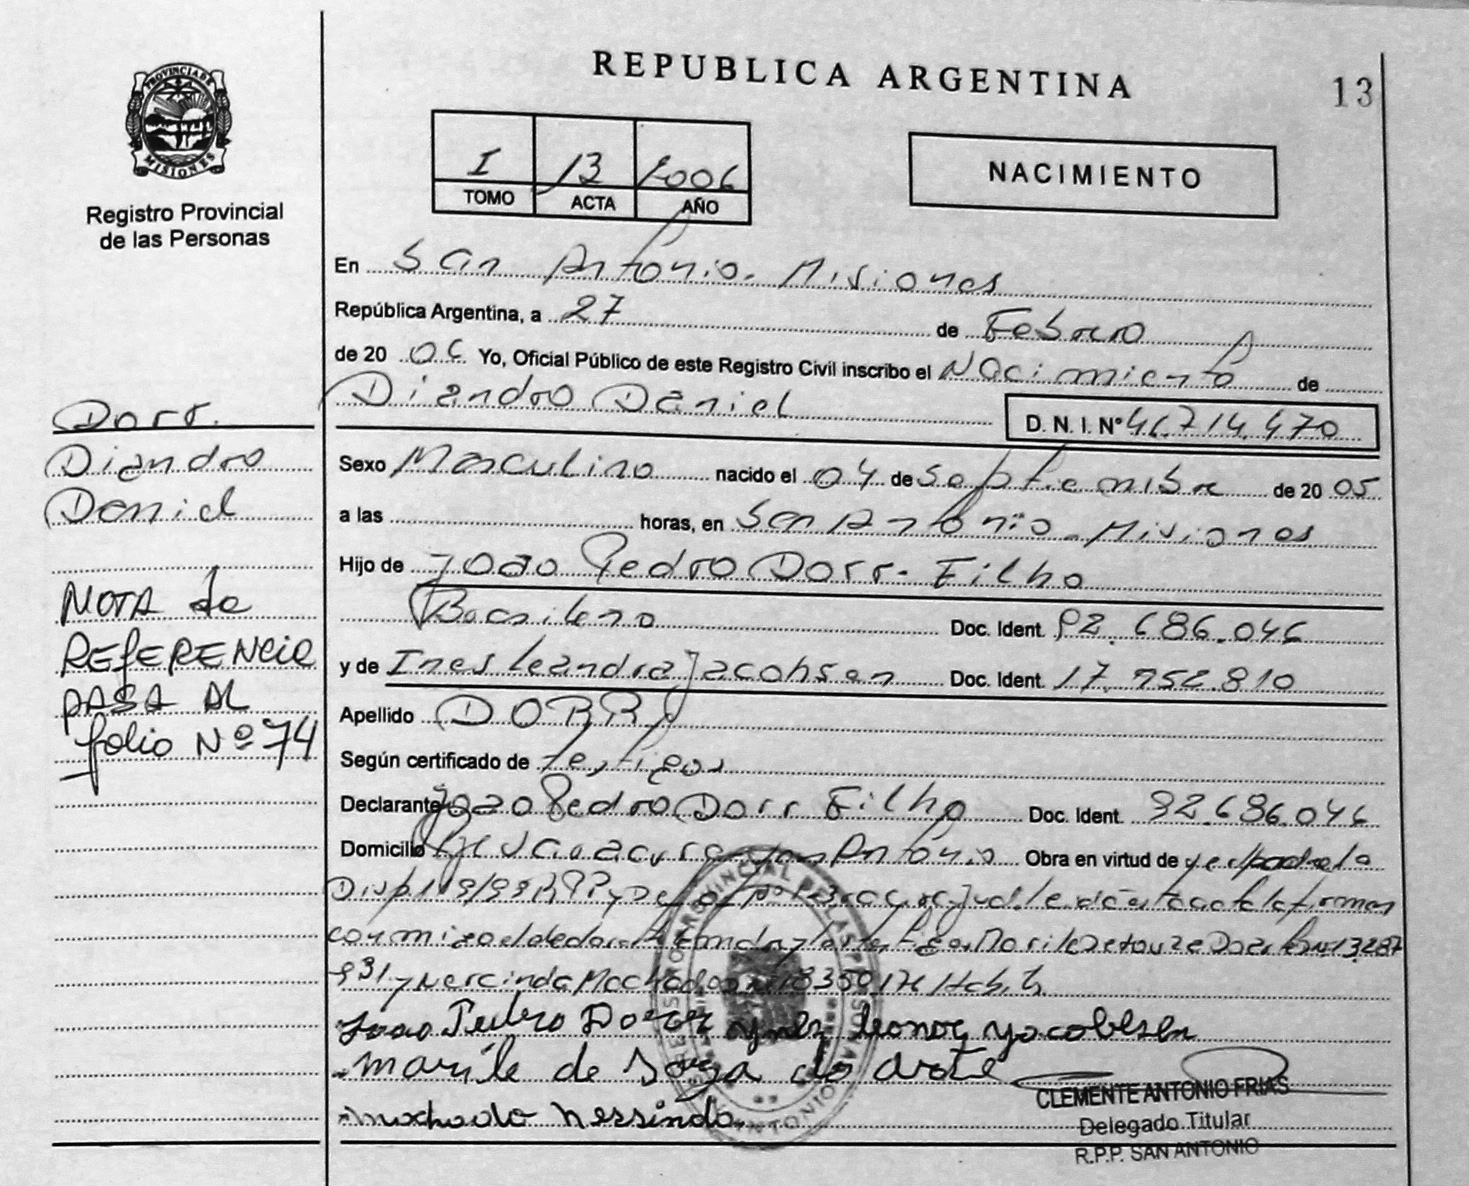 REPUBLICA ARGENTINA
13
PROVINCIA DE
MISIONES
Registro Provincial
de las Personas
I 13 2006
TOMO ACTA AÑO
NACIMIENTO
En San Antonio - Misiones
República Argentina, a 27 de Febrero
de 20 06 Yo, Oficial Público de este Registro Civil inscribo el Nacimiento de
Diandro Daniel
D. N. I. Nº 46.714.470
Dorr.
Diandro
Daniel
Sexo Masculino nacido el 04 de Septiembre de 20 05
a las horas, en San Antonio - Misiones
Hijo de Joao Pedro Dorr - Filho
Brasilero Doc. Ident. 92.686.046
y de Ines Leandra Jacobsen Doc. Ident. 17.952.810
NOTA de
REFERENCIA
PASA AL
folio Nº 74
Apellido DORR
Según certificado de testigos
Declarante Joao Pedro Dorr Filho Doc. Ident. 92.686.046
Domicilio San Antonio Obra en virtud de
Disp
conmigo el declarante
931 y Nercinda Machado
Joao Pedro Dorr ynez leonor yacobsen
marile de Souza do arte
machado Nessinda
REGISTRO PROVINCIAL DE LAS PERSONAS
SAN ANTONIO
CLEMENTE ANTONIO FRIAS
Delegado Titular
R.P.P. SAN ANTONIO